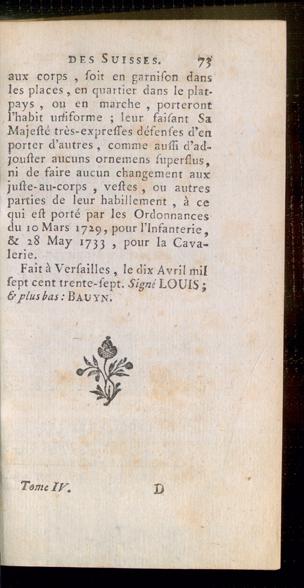 DES SUISSES. 73
aux corps , ſoit en garniſon dans
les places , en quartier dans le plat-
pays , ou en marche , porteront
l'habit uniforme ; leur faiſant Sa
Majeſté très-expreſſes défenſes d'en
porter d'autres , comme auſſi d'ad-
jouſter aucuns ornemens ſuperflus,
ni de faire aucun changement aux
juſte-au-corps , veſtes , ou autres
parties de leur habillement , à ce
qui eſt porté par les Ordonnances
du 10 Mars 1729, pour l'Infanterie,
& 28 May 1733 , pour la Cava-
lerie.
Fait à Verſailles , le dix Avril mil
ſept cent trente-ſept. Signé LOUIS ;
& plus bas : BAUYN.
Tome IV. D